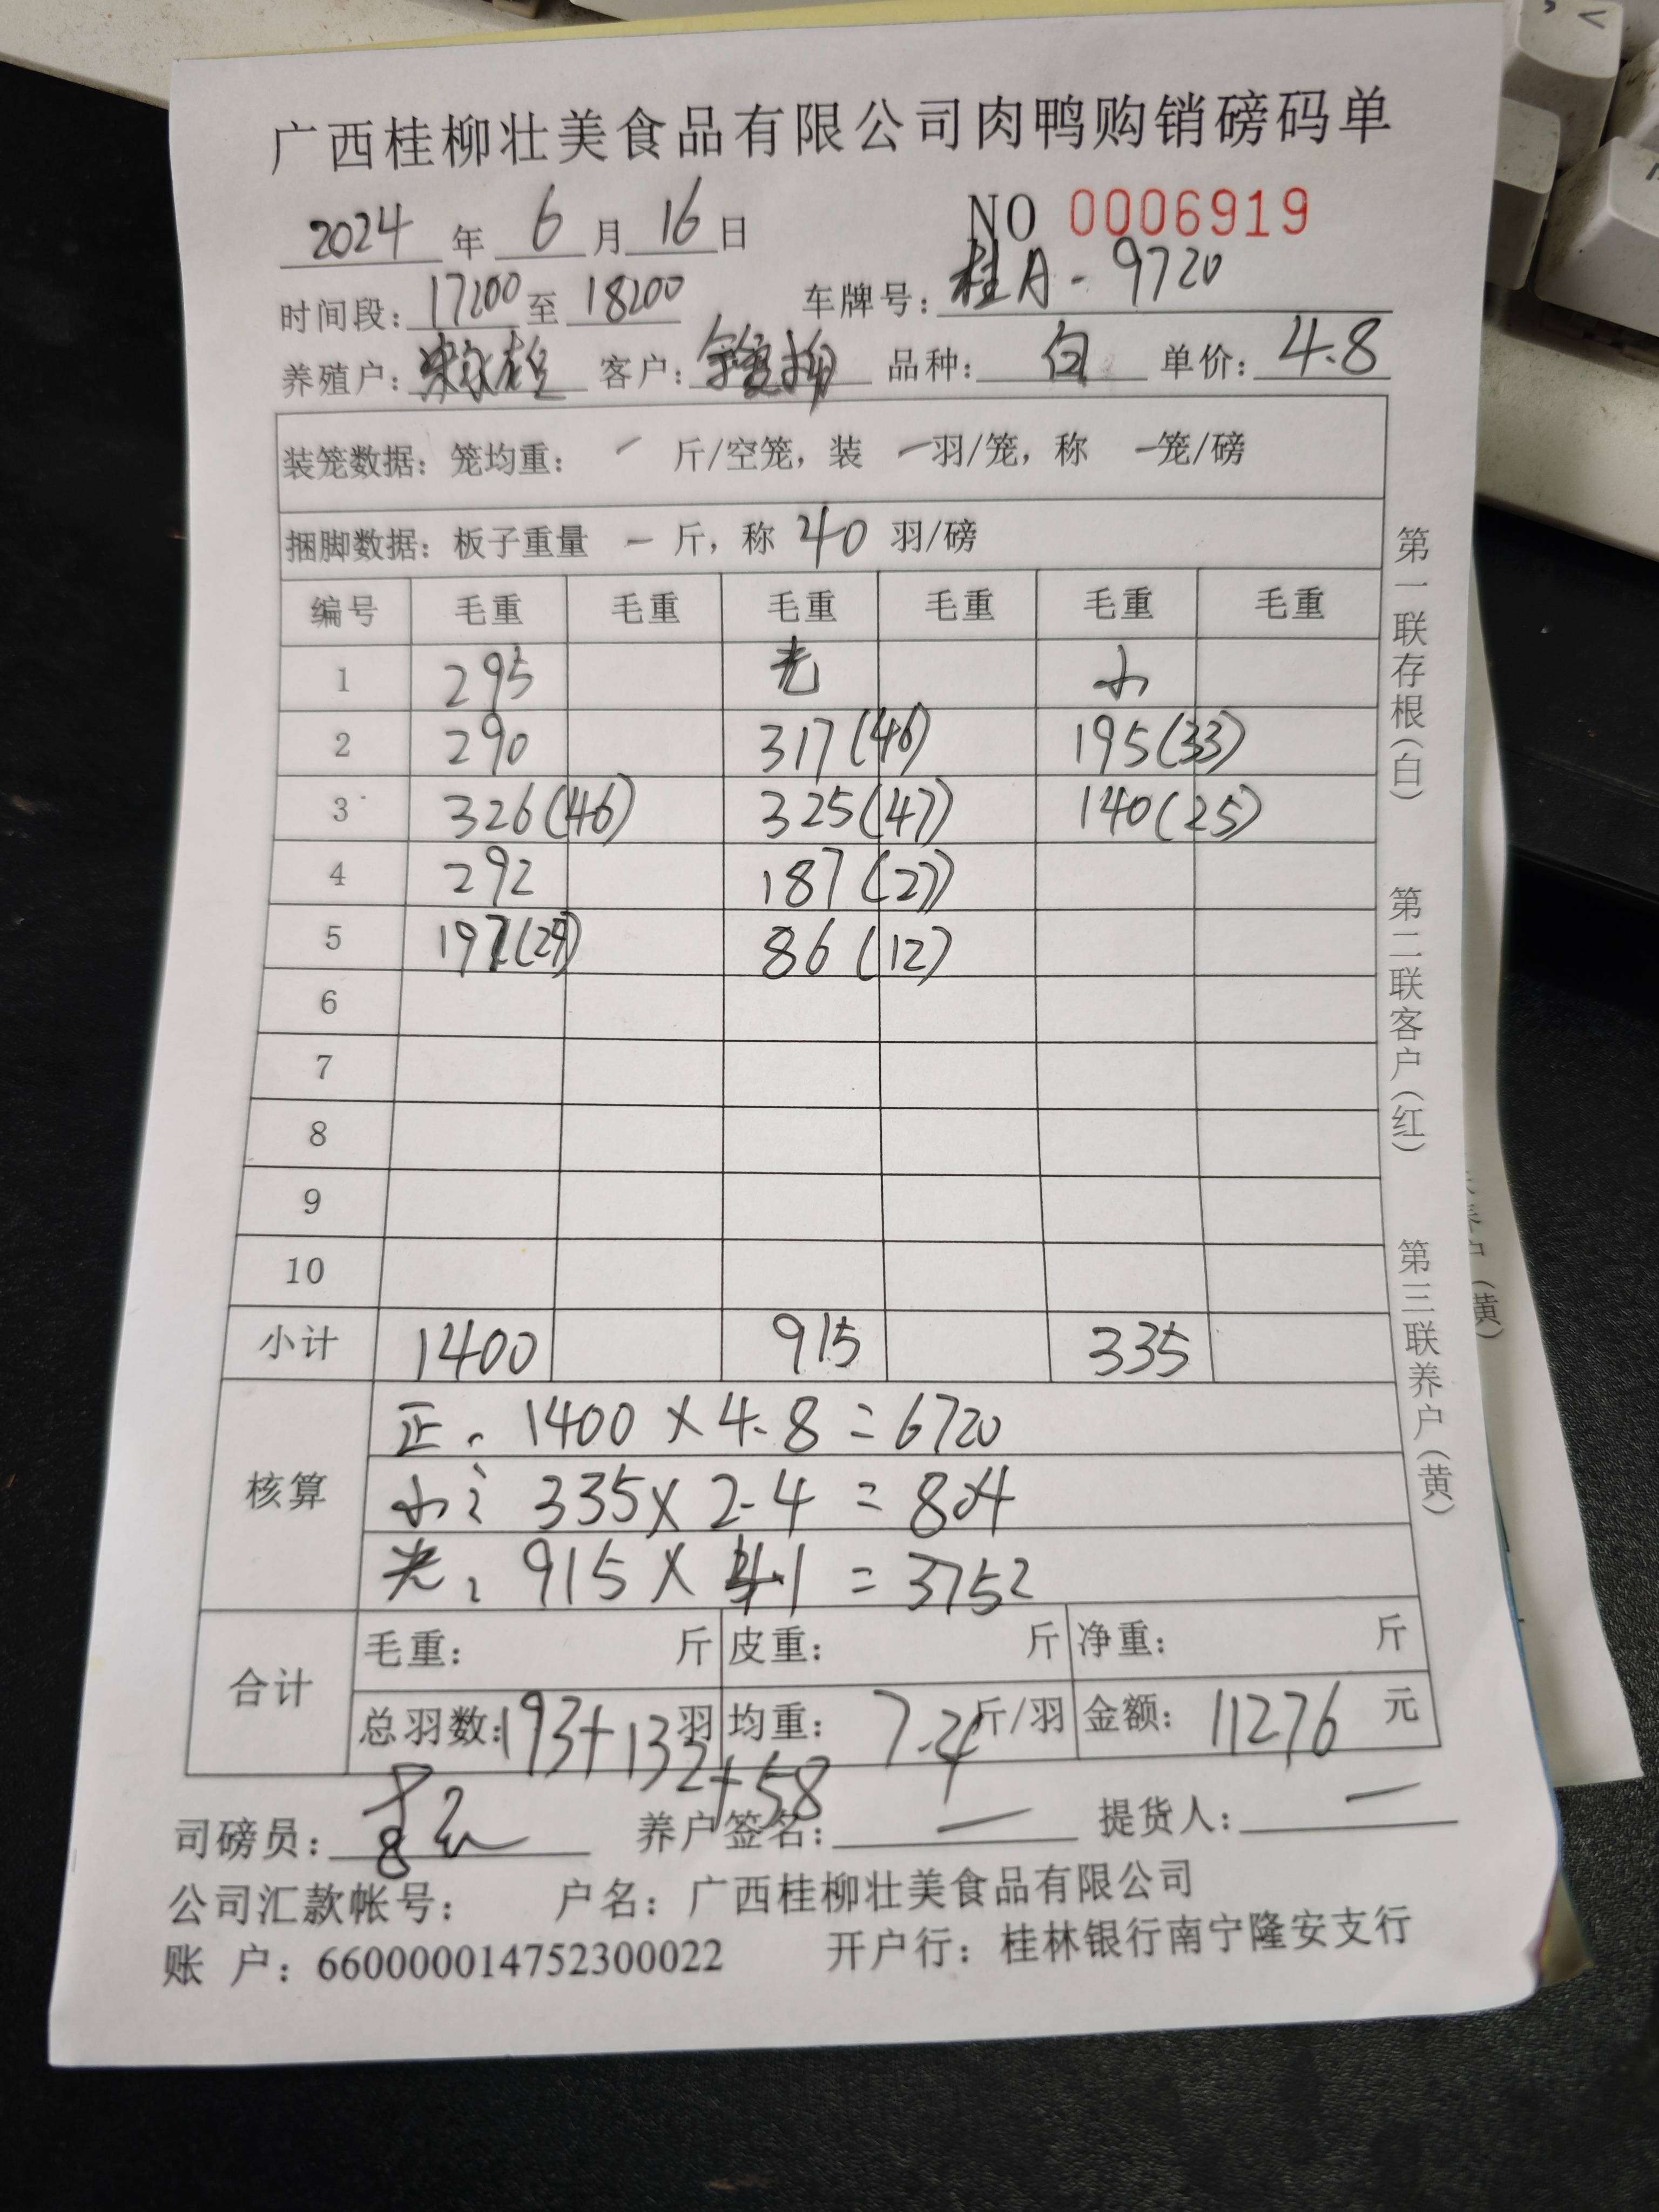 广西桂柳壮美食品有限公司肉鸭购销磅码单
2024 年 6 月 16 日 NO 0006919
时间段: 17:00 至 18:00 车牌号: 桂A-9720
养殖户: 客户: 品种: 白 单价: 4.8
装笼数据: 笼均重: - 斤/空笼, 装 - 羽/笼, 称 - 笼/磅
捆脚数据: 板子重量 - 斤, 称 40 羽/磅
编号 毛重 毛重 毛重 毛重 毛重 毛重
1 295 光 小
2 290 317(46) 195(33)
3 326(46) 325(47) 140(25)
4 292 187(27)
5 197(27) 86(12)
6
7
8
9
10
小计 1400 915 335
核算 正: 1400×4.8=6720
小: 335×2.4=804
光: 915×4.1=3752
合计 毛重: 斤 皮重: 斤 净重: 斤
总羽数: 193+132+58 羽 均重: 7.24 斤/羽 金额: 11276 元
司磅员: 养户签名: — 提货人: —
公司汇款帐号: 户名: 广西桂柳壮美食品有限公司
账 户: 660000014752300022 开户行: 桂林银行南宁隆安支行
第一联存根(白) 第二联客户(红) 第三联养户(黄)